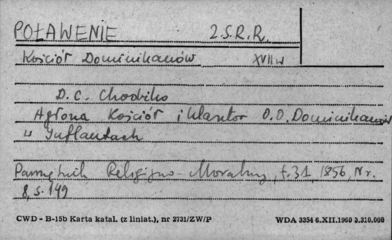 POŁAWENIE Z.S.R.R.
Kościół Dominikanów XVII w
D.C. Chodźko
Agłona Kościół i klasztor O.O. Dominikanów
w Inflantach
Pamiętnik Religijno-Moralny, t.31, 1856, Nr.
8, s. 149
CWD - B-15b Karta katal. (z liniat.), nr 2731/ZW/P WDA 3354 6.XII.1960 2.210.000